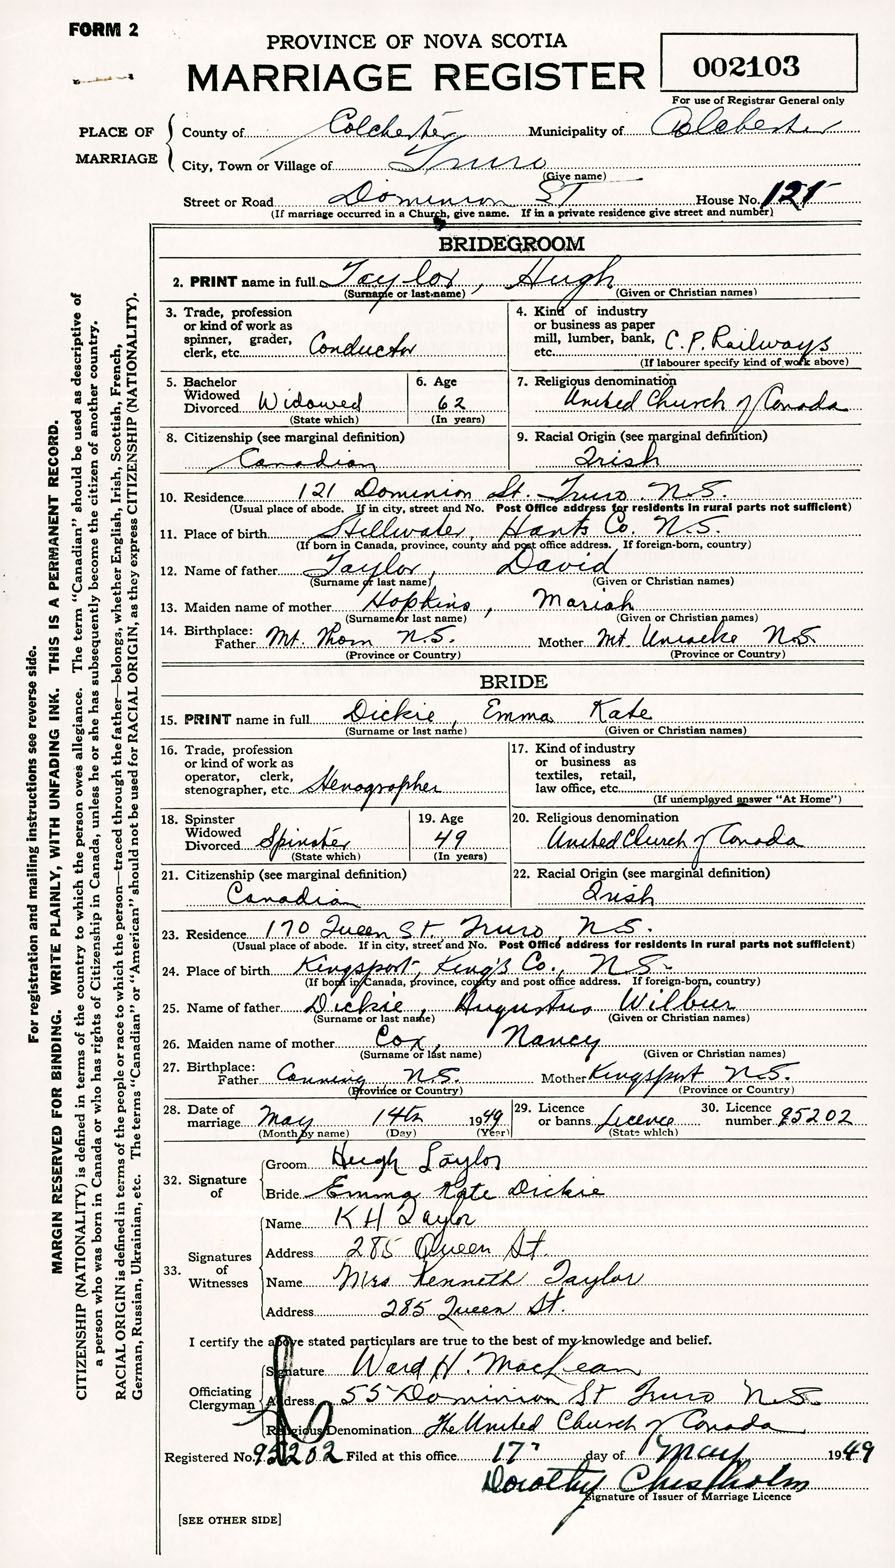 FORM 2
PROVINCE OF NOVA SCOTIA
MARRIAGE REGISTER
002103
For use of Registrar General only
PLACE OF MARRIAGE
County of Colchester Municipality of Colchester
City, Town or Village of Truro
(Give name)
Street or Road Dominion ST House No. 121
(If marriage occurred in a Church, give name. If in a private residence give street and number)
BRIDEGROOM
2. PRINT name in full Taylor, Hugh
(Surname or last name) (Given or Christian names)
3. Trade, profession or kind of work as spinner, grader, clerk, etc. Conductor
4. Kind of industry or business as paper mill, lumber, bank, etc. C.P. Railways
(If labourer specify kind of work above)
5. Bachelor Widowed Divorced Widowed
(State which)
6. Age 62
(In years)
7. Religious denomination United Church of Canada
8. Citizenship (see marginal definition) Canadian
9. Racial Origin (see marginal definition) Irish
10. Residence 121 Dominion St. Truro N.S.
(Usual place of abode. If in city, street and No. Post Office address for residents in rural parts not sufficient)
11. Place of birth Stillwater, Hants Co. N.S.
(If born in Canada, province, county and post office address. If foreign-born, country)
12. Name of father Taylor, David
(Surname or last name) (Given or Christian names)
13. Maiden name of mother Hopkins, Mariah
(Surname or last name) (Given or Christian names)
14. Birthplace: Father Mt. Thom N.S. Mother Mt. Uniacke N.S.
(Province or Country) (Province or Country)
BRIDE
15. PRINT name in full Dickie, Emma Kate
(Surname or last name) (Given or Christian names)
16. Trade, profession or kind of work as operator, clerk, stenographer, etc. Stenographer
17. Kind of industry or business as textiles, retail, law office, etc.
(If unemployed answer "At Home")
18. Spinster Widowed Divorced Spinster
(State which)
19. Age 49
(In years)
20. Religious denomination United Church of Canada
21. Citizenship (see marginal definition) Canadian
22. Racial Origin (see marginal definition) Irish
23. Residence 170 Queen St. Truro, N.S.
(Usual place of abode. If in city, street and No. Post Office address for residents in rural parts not sufficient)
24. Place of birth Kingsport, King's Co., N.S.
(If born in Canada, province, county and post office address. If foreign-born, country)
25. Name of father Dickie, Augustus Wilbur
(Surname or last name) (Given or Christian names)
26. Maiden name of mother Cox, Nancy
(Surname or last name) (Given or Christian names)
27. Birthplace: Father Canning, N.S. Mother Kingsport N.S.
(Province or Country) (Province or Country)
28. Date of marriage May 14th 1949
(Month by name) (Day) (Year)
29. Licence or banns Licence
(State which)
30. Licence number 95202
32. Signature of
Groom Hugh Taylor
Bride Emma Kate Dickie
33. Signatures of Witnesses
Name K H Taylor
Address 285 Queen St.
Name Mrs Kenneth Taylor
Address 285 Queen St.
I certify the above stated particulars are true to the best of my knowledge and belief.
Officiating Clergyman
Signature Ward H. MacLean
Address 55 Dominion St Truro N.S.
Religious Denomination The United Church of Canada
Registered No. 95202 Filed at this office 17" day of May 1949
Dorothy Chisholm
Signature of Issuer of Marriage Licence
[SEE OTHER SIDE]
For registration and mailing instructions see reverse side.
MARGIN RESERVED FOR BINDING. WRITE PLAINLY, WITH UNFADING INK. THIS IS A PERMANENT RECORD.
CITIZENSHIP (NATIONALITY) is defined in terms of the country to which the person owes allegiance. The term "Canadian" should be used as descriptive of
a person who was born in Canada or who has rights of Citizenship in Canada, unless he or she has subsequently become the citizen of another country.
RACIAL ORIGIN is defined in terms of the people or race to which the person—traced through the father—belongs, whether English, Irish, Scottish, French,
German, Russian, Ukrainian, etc. The terms "Canadian" or "American" should not be used for RACIAL ORIGIN, as they express CITIZENSHIP (NATIONALITY).